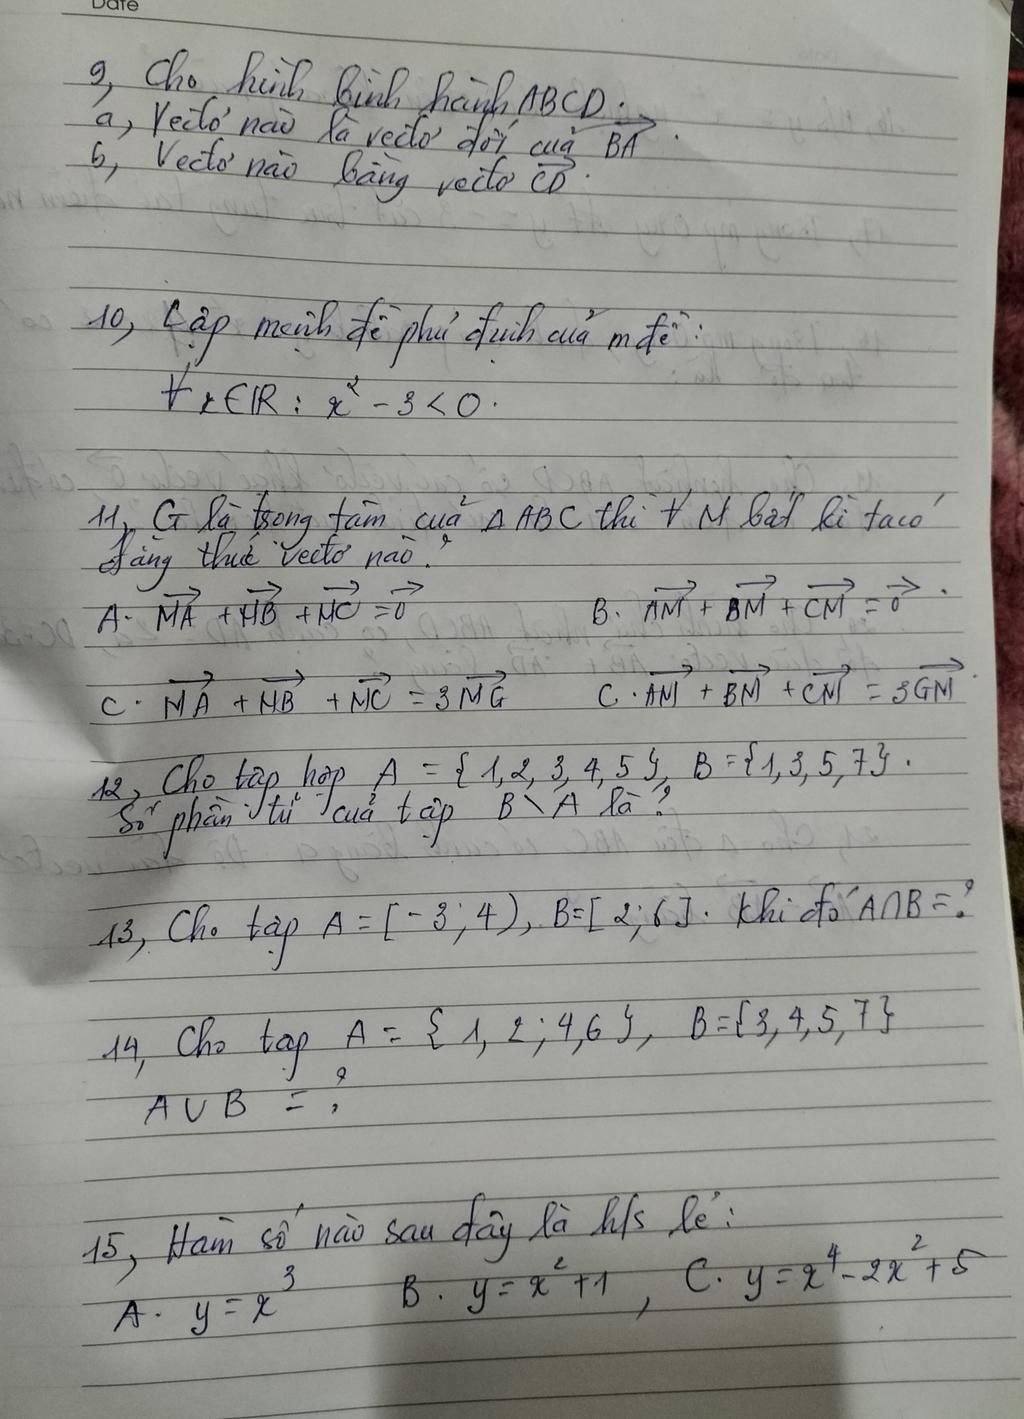 Date
9, Cho hình bình hành ABCD.
a, Vectơ nào là vectơ đối của BA→.
b, Vectơ nào bằng vectơ CD→.
10, Lập mệnh đề phủ định của mđề:
∀x∈ℝ: x² - 3 < 0.
11, G là trọng tâm của Δ ABC thì ∀ M bất kì ta có
đẳng thức vectơ nào?
A. MA→ + MB→ + MC→ = 0→ B. AM→ + BM→ + CM→ = 0→.
C. MA→ + MB→ + MC→ = 3MG→ C. AM→ + BM→ + CM→ = 3GM→.
12, Cho tập hợp A = {1,2,3,4,5}, B = {1,3,5,7}.
Số phần tử của tập B \ A là?
13, Cho tập A = [-3;4), B=[2;6]. Khi đó A∩B=?
14, Cho tập A = {1,2;4,6}, B={3,4,5,7}
A∪B = ?
15, Hàm số nào sau đây là h/s lẻ:
A. y = x³ B. y = x² + 1, C. y = x⁴ - 2x² + 5